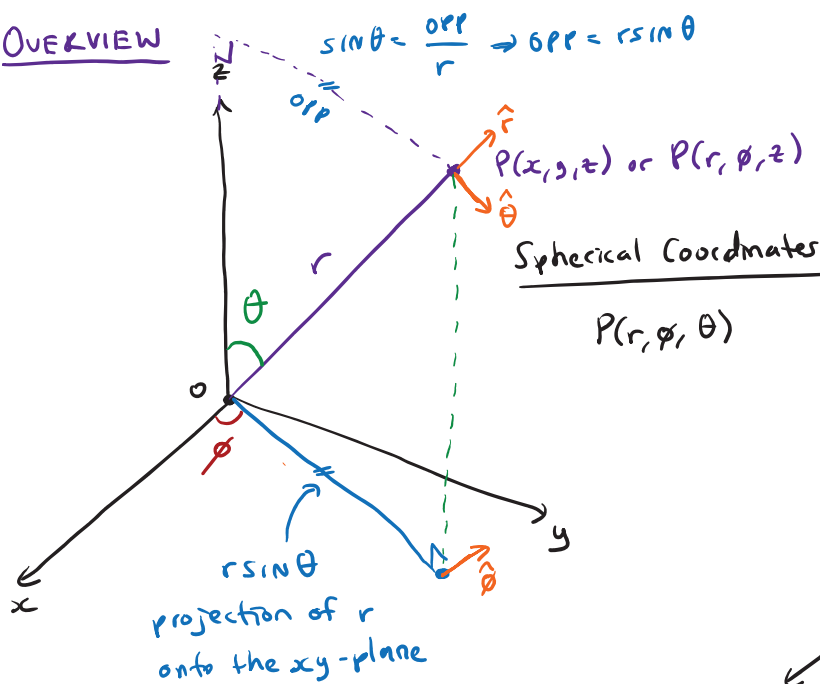 OVERVIEW
sinθ = opp/r → opp = rsinθ
z
opp
r̂
P(x,y,z) or P(r,ø,z)
θ̂
Spherical Coordinates
r
P(r,ø,θ)
θ
O
ø
y
rsinθ
ø̂
x
projection of r
onto the xy-plane